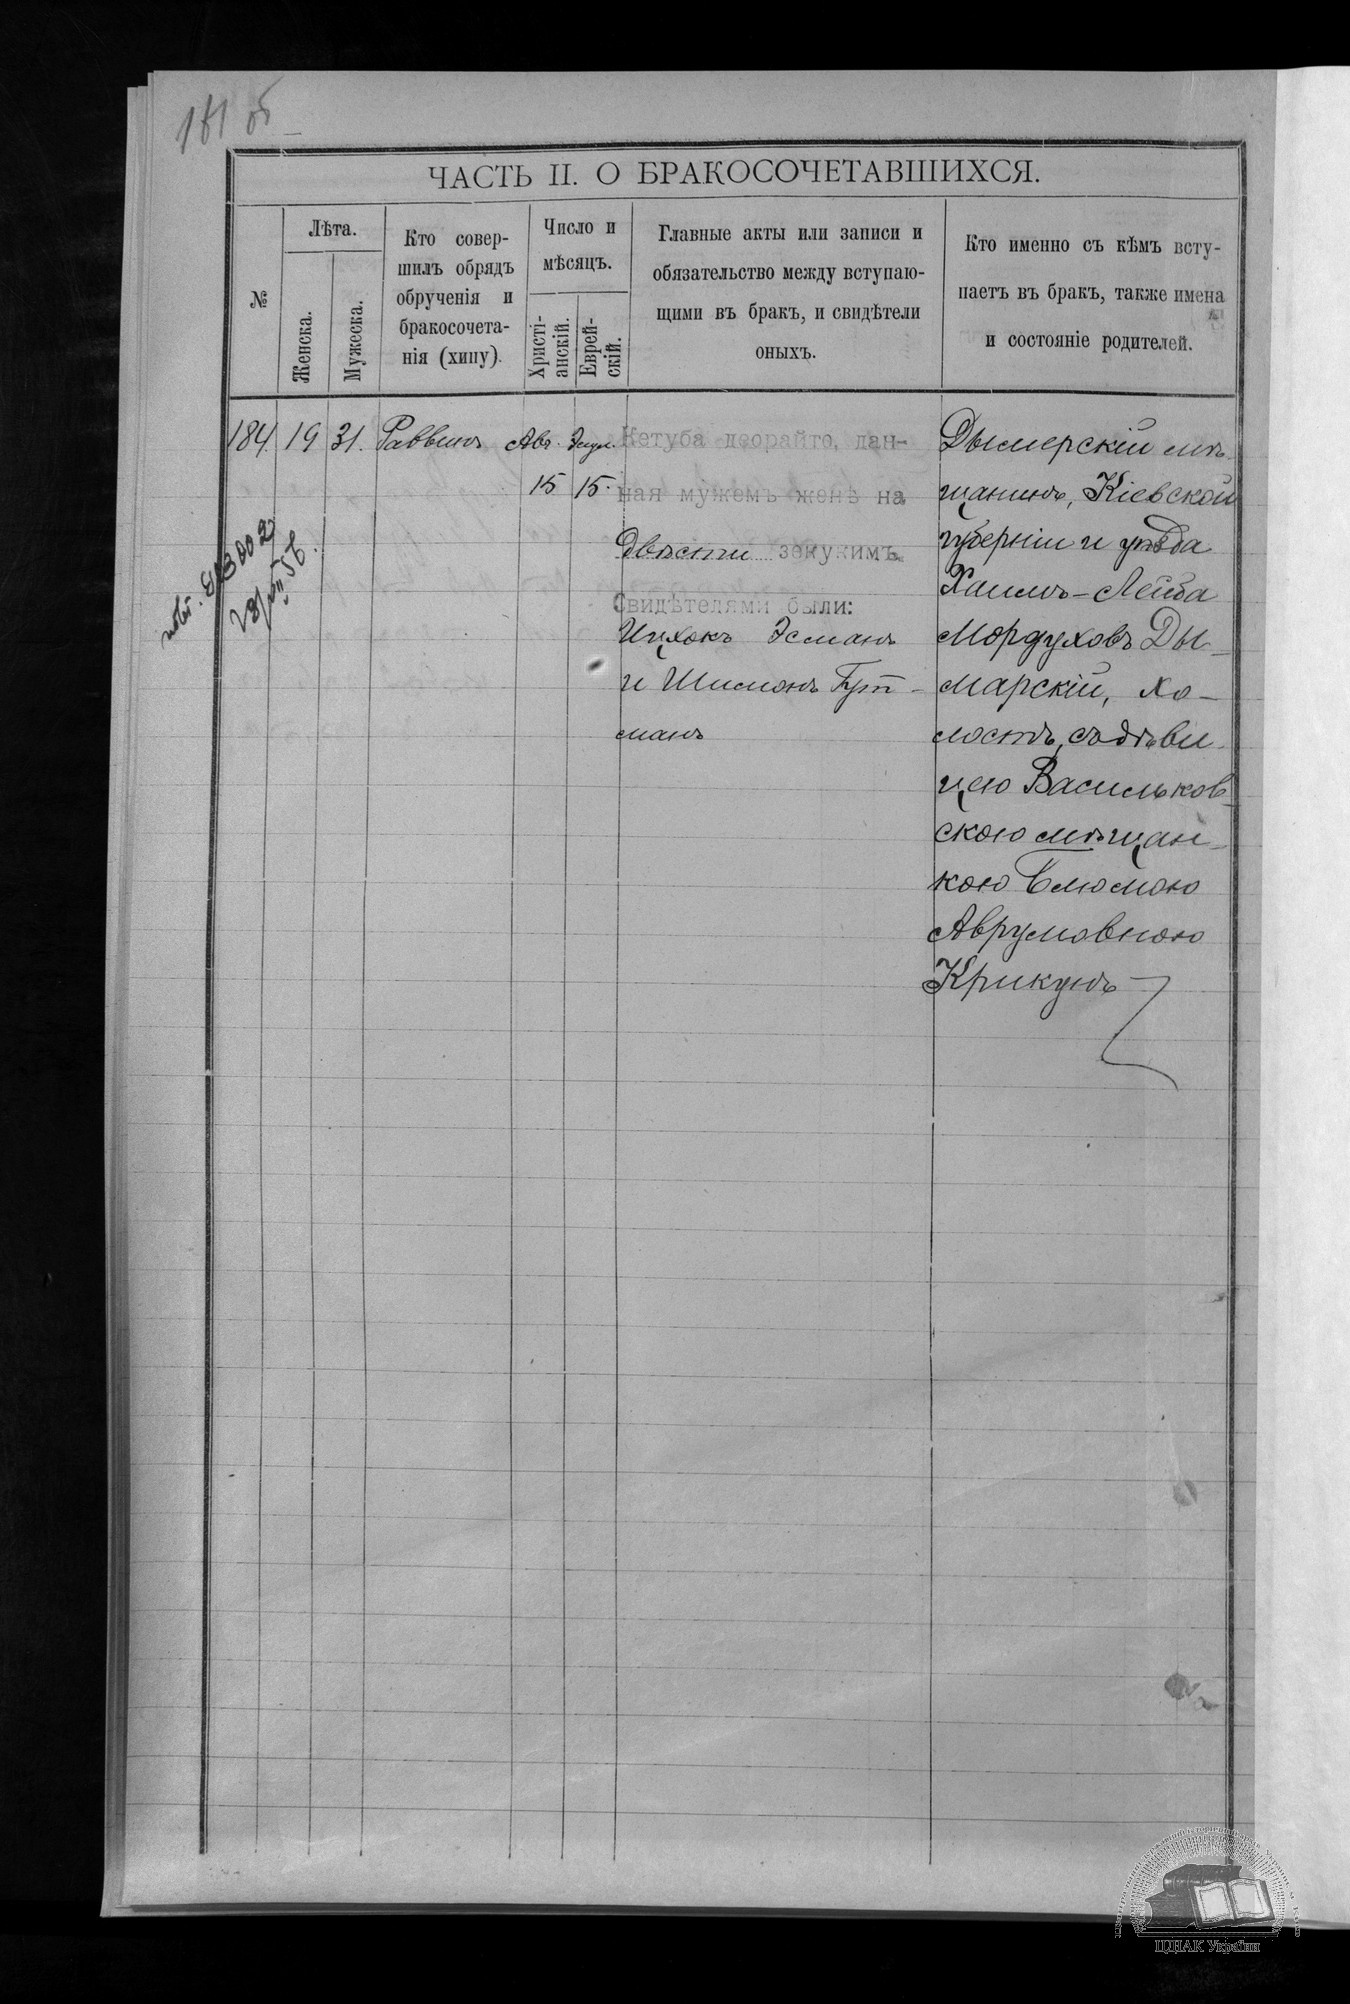 181 об
ЧАСТЬ II. О БРАКОСОЧЕТАВШИХСЯ.
№
Лѣта.
Женска.
Мужеска.
Кто совер-
шилъ обрядъ
обрученія и
бракосочета-
нія (хипу).
Число и
мѣсяцъ.
Христі-
анскій.
Еврей-
скій.
Главные акты или записи и
обязательство между вступаю-
щими въ бракъ, и свидѣтели
оныхъ.
Кто именно съ кѣмъ всту-
паетъ въ бракъ, также имена
и состояніе родителей.
184. 19 31. Раввинъ
Авг.
15
Элул.
15.
Кетуба деорайто, дан-
ная мужемъ женѣ на
двѣсти зекукимъ
Свидѣтелями были:
Ицхокъ Эсманъ
и Шимонъ Гут-
манъ
Дымерскій мѣ-
щанинъ, Кіевской
губерніи и уѣзда
Хаимъ-Лейба
Мордуховъ Ды-
марскій, хо-
лостъ, съ дѣви-
цею Васильков-
скою мѣщан-
кою Блюмою
Аврумовною
Крикунъ
ЦДІАК України